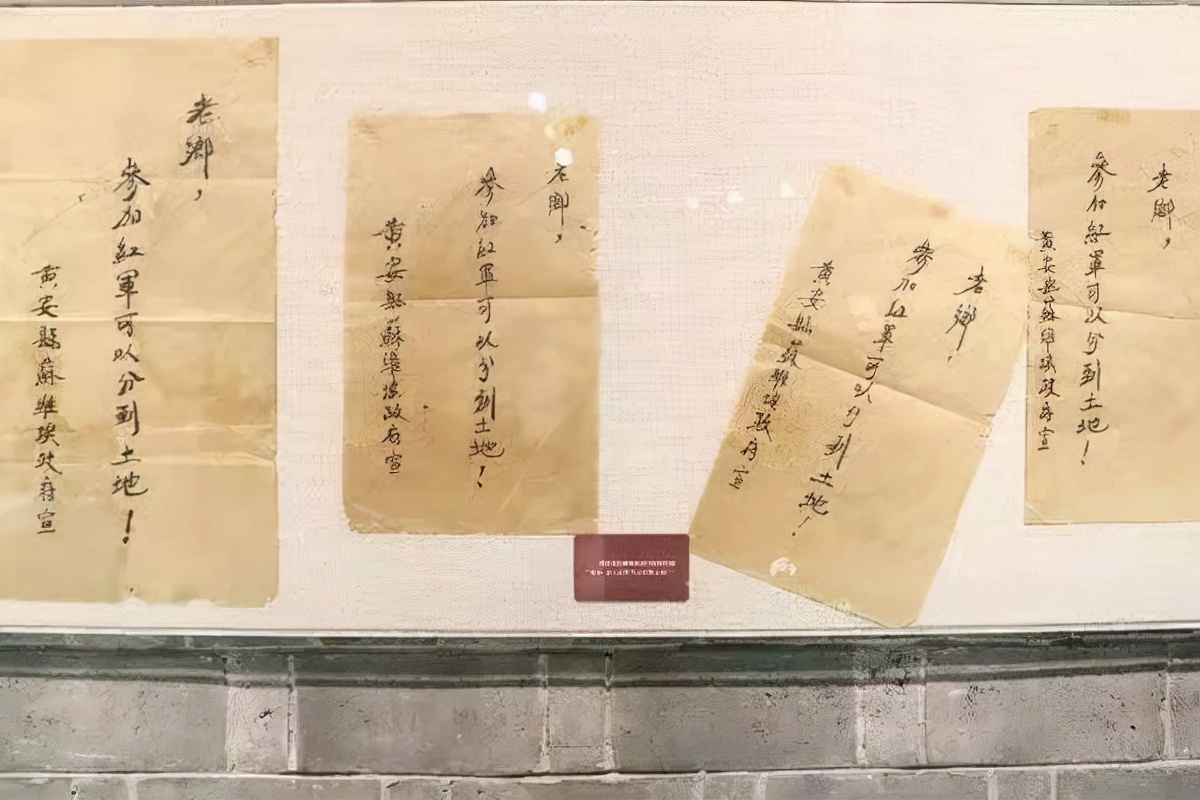 老鄉，
參加紅軍可以分到土地！
黃安縣蘇維埃政府宣
老鄉，
參加紅軍可以分到土地！
黃安縣蘇維埃政府宣
老鄉，
參加紅軍可以分到土地！
黃安縣蘇維埃政府宣
老鄉，
參加紅軍可以分到土地！
黃安縣蘇維埃政府宣